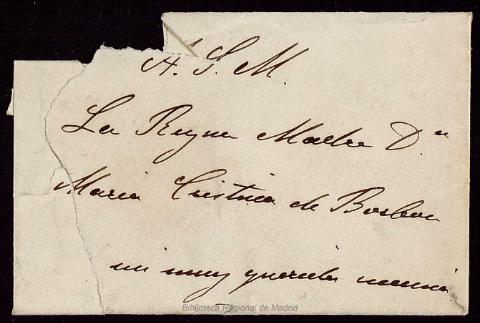 A. S. M.
La Reyna Madre Dª
Maria Cristina de Borbon
mi muy querida mamá
Biblioteca Regional de Madrid